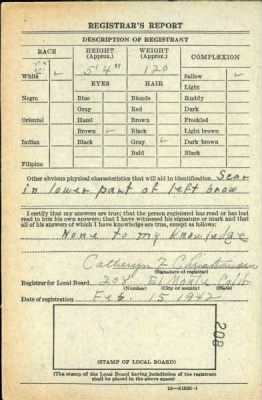 REGISTRAR'S REPORT
DESCRIPTION OF REGISTRANT
RACE HEIGHT (Approx.) WEIGHT (Approx.) COMPLEXION
White ✓ 5'4" 120 Sallow ✓
EYES HAIR Light
Negro Blue Blonde Ruddy
Gray Red Dark
Oriental Hazel Brown Freckled
Brown ✓ Black Light brown
Indian Black Gray ✓ Dark brown
Bald Black
Filipino
Other obvious physical characteristics that will aid in identification. Scar
in lower part of left brow
I certify that my answers are true; that the person registered has read or has had
read to him his own answers; that I have witnessed his signature or mark and that
all of his answers of which I have knowledge are true, except as follows:
None to my knowledge
(Signature of registrar)
Registrar for Local Board 208 El Monte Calif
(Number) (City or county) (State)
Date of registration Feb. 15 1942
208
(STAMP OF LOCAL BOARD)
(The stamp of the Local Board having jurisdiction of the registrant
shall be placed in the above space)